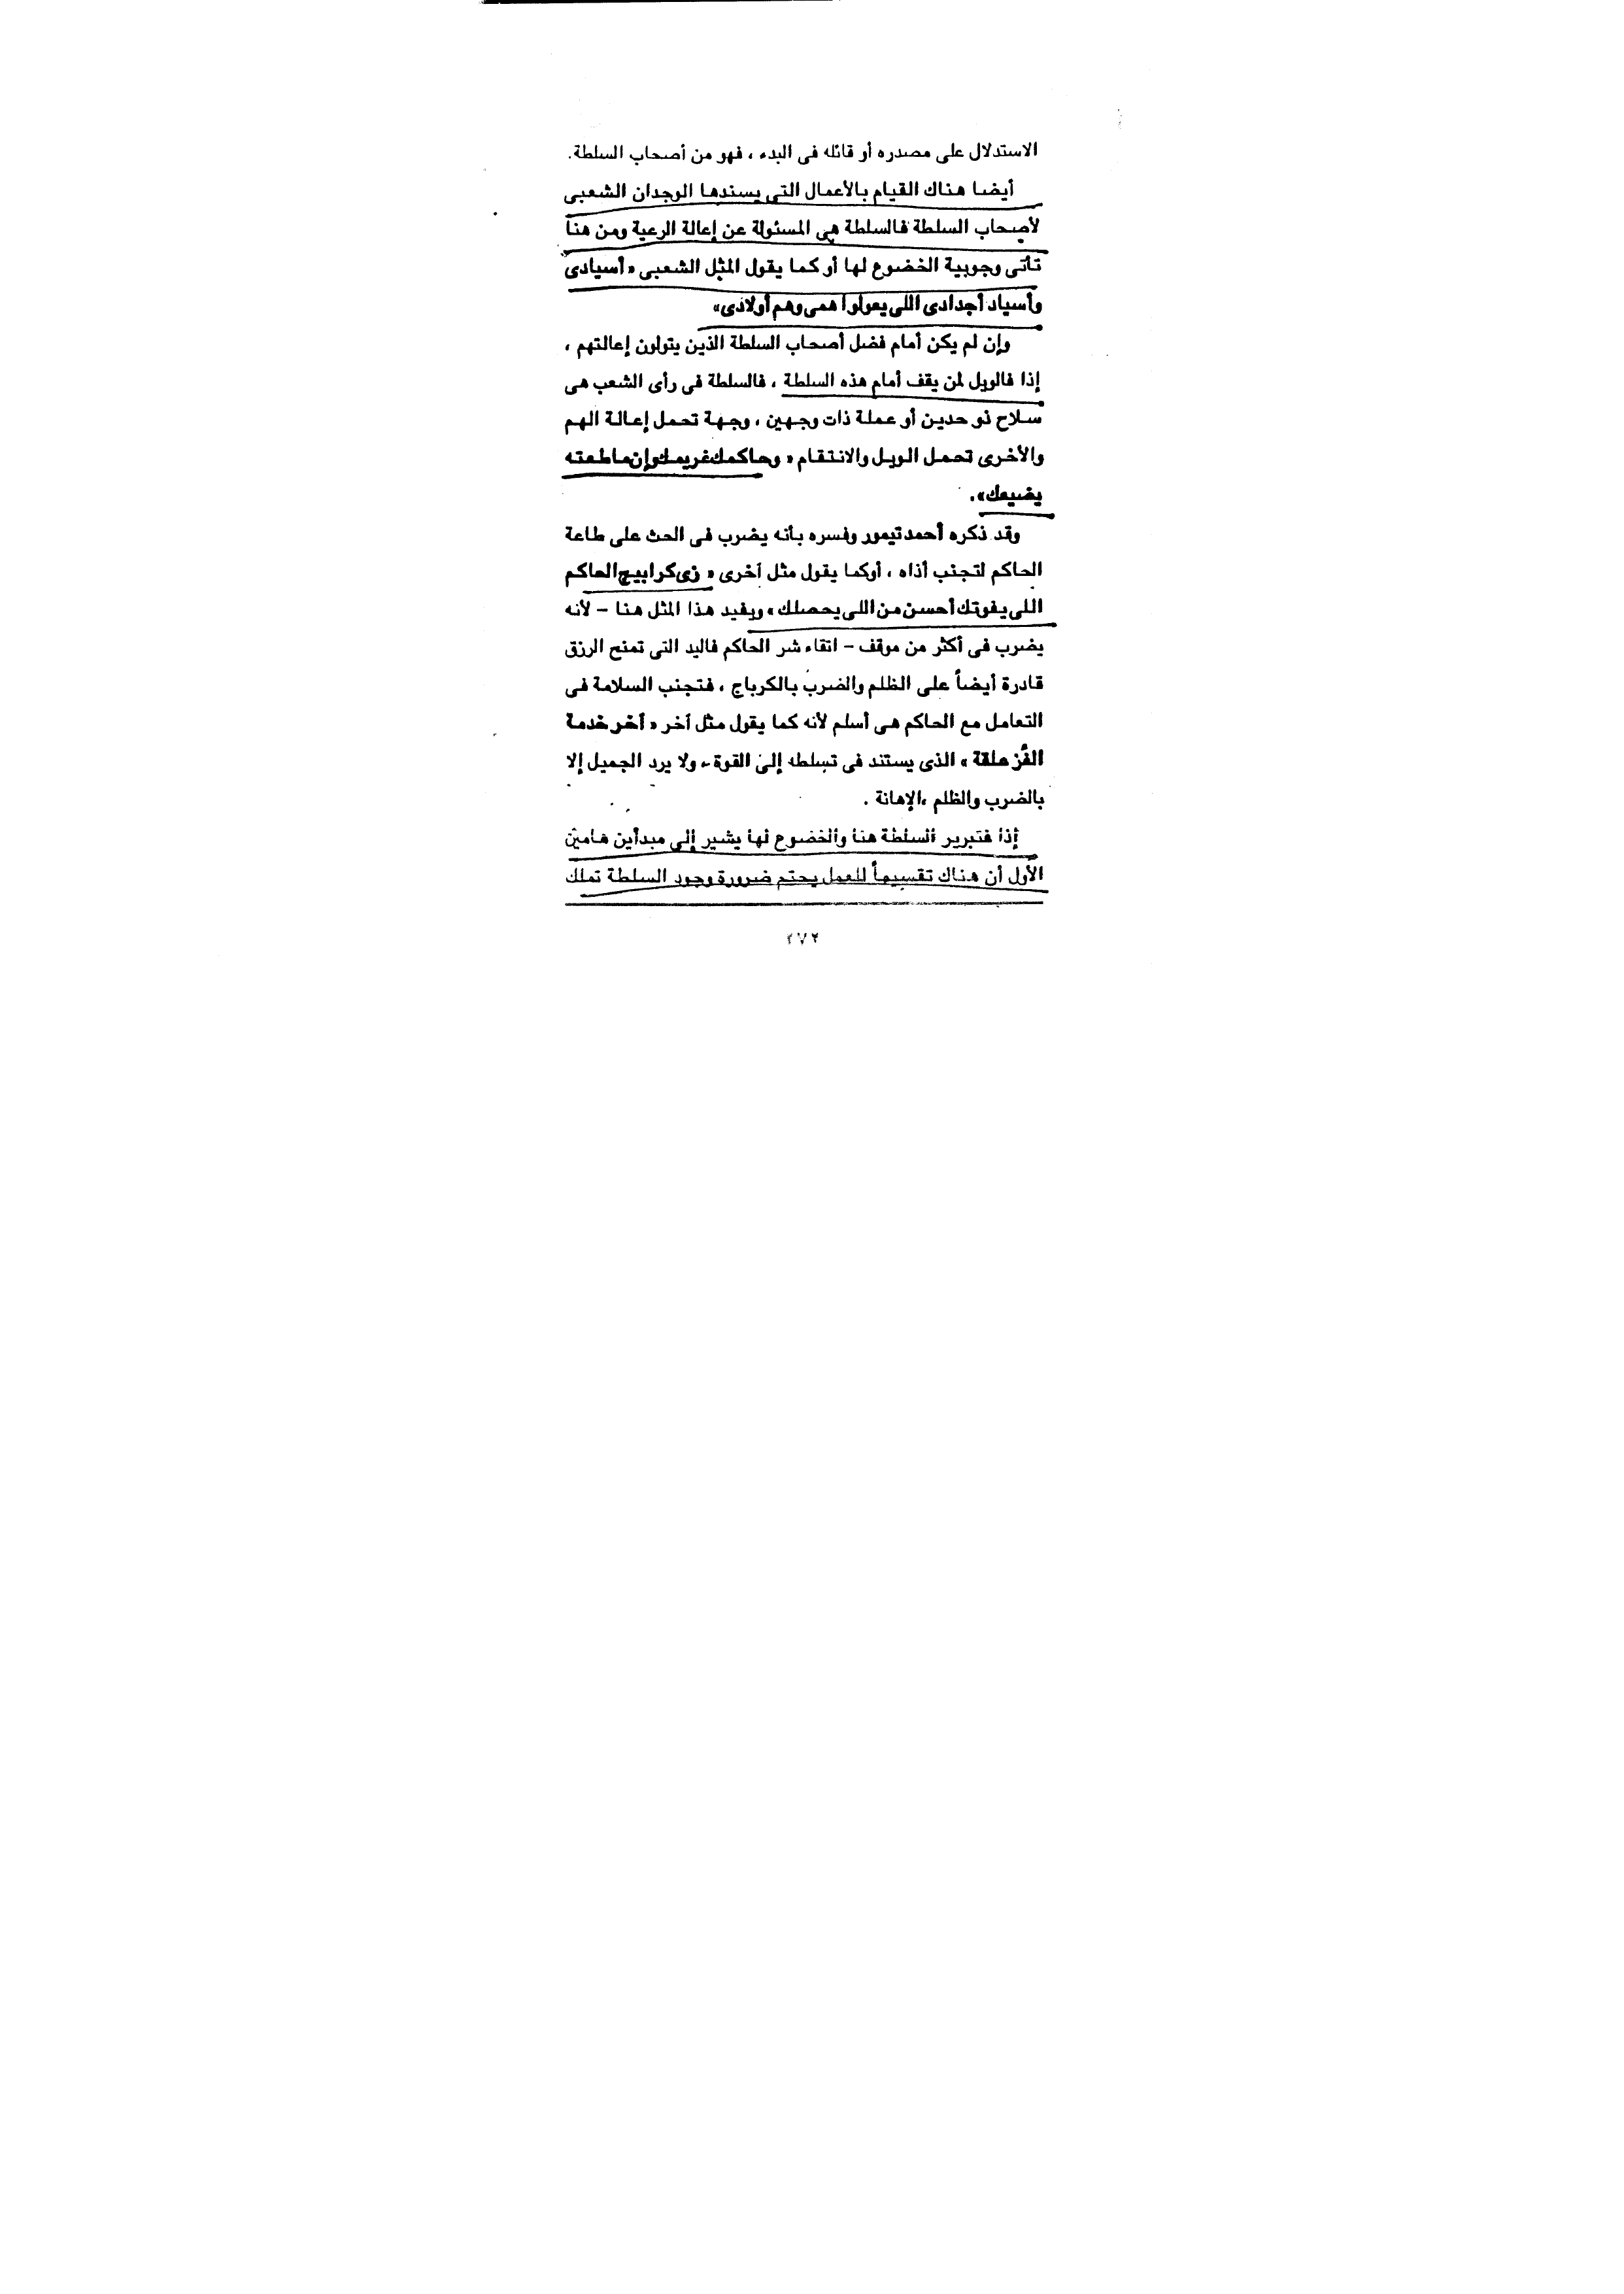 الاستدلال على مصدره أو قائله فى البدء ، فهو من أصحاب السلطة.
أيضا هناك القيام بالأعمال التى يسندها الوجدان الشعبى
لأصحاب السلطة فالسلطة هى المسئولة عن إعالة الرعية ومن هنا
تأتى وجوبية الخضوع لها أو كما يقول المثل الشعبى « أسيادى
وأسياد أجدادى اللى يعولوا همى وهم أولادى»
وإن لم يكن أمام فضل أصحاب السلطة الذين يتولون إعالتهم ،
إذا فالويل لمن يقف أمام هذه السلطة ، فالسلطة فى رأى الشعب هى
سلاح ذو حدين أو عملة ذات وجهين ، وجهة تحمل إعالة الهم
والأخرى تحمل الويل والانتقام « وحاكمك غريمك وإن ماطعته
يضيعك».
وقد ذكره أحمد تيمور وفسره بأنه يضرب فى الحث على طاعة
الحاكم لتجنب أذاه ، أوكما يقول مثل آخرى « زى كرابيج الحاكم
اللى يفوتك أحسن من اللى يحصلك » ويفيد هذا المثل هنا – لأنه
يضرب فى أكثر من موقف – اتقاء شر الحاكم فاليد التى تمنح الرزق
قادرة أيضاً على الظلم والضرب بالكرباج ، فتجنب السلامة فى
التعامل مع الحاكم هى أسلم لأنه كما يقول مثل آخر « آخر خدمة
الغُز علقة » الذى يستند فى تسلطه إلى القوة ، ولا يرد الجميل إلا
بالضرب والظلم ،الإهانة .
إذا فتبرير السلطة هنا والخضوع لها يشير إلى مبدأين هامين
الأول أن هناك تقسيماً للعمل يحتم ضرورة وجود السلطة تملك
٢٧٢